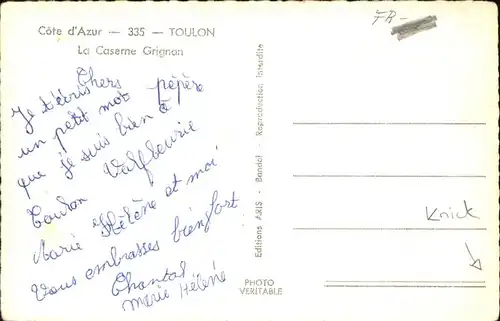 Côte d'Azur — 335 — TOULON
La Caserne Grignan
Chers pépère
Je t'écris
un petit mot
que je suis bien à
Toulon
Marie Hélène et moi
Vous embrasses bienfort
Chantal
Marie Hélène
Editions ARIS - Bandol - Reproduction Interdite
PHOTO
VERITABLE
FR-
Knick